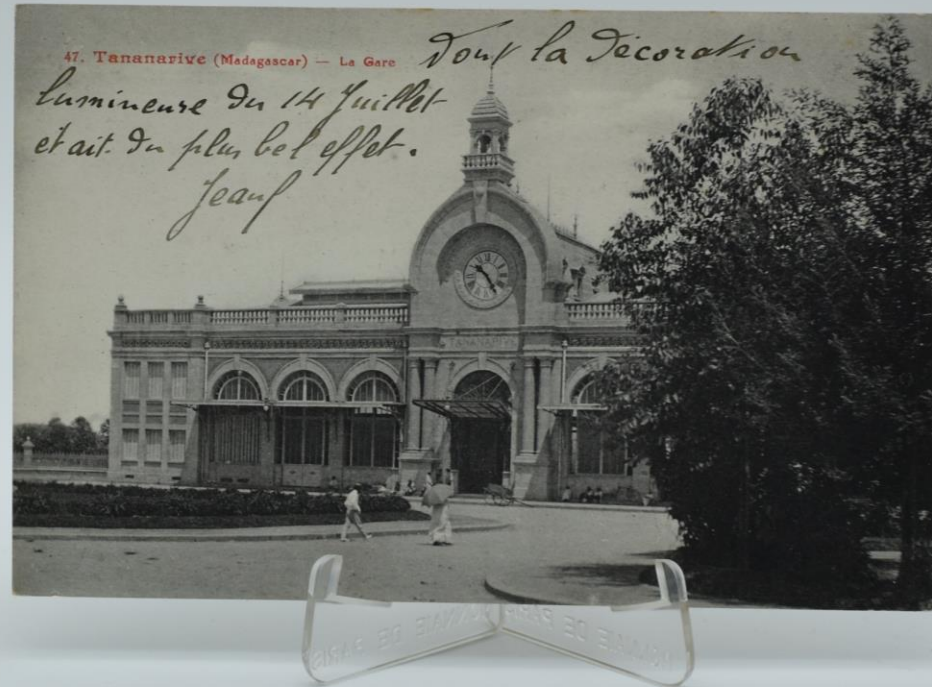 47. Tananarive (Madagascar) — La Gare
Dont la décoration
lumineuse du 14 Juillet
était du plus bel effet.
Jeanf
TANANARIVE
MONNAIE DE PARIS MONNAIE DE PARIS